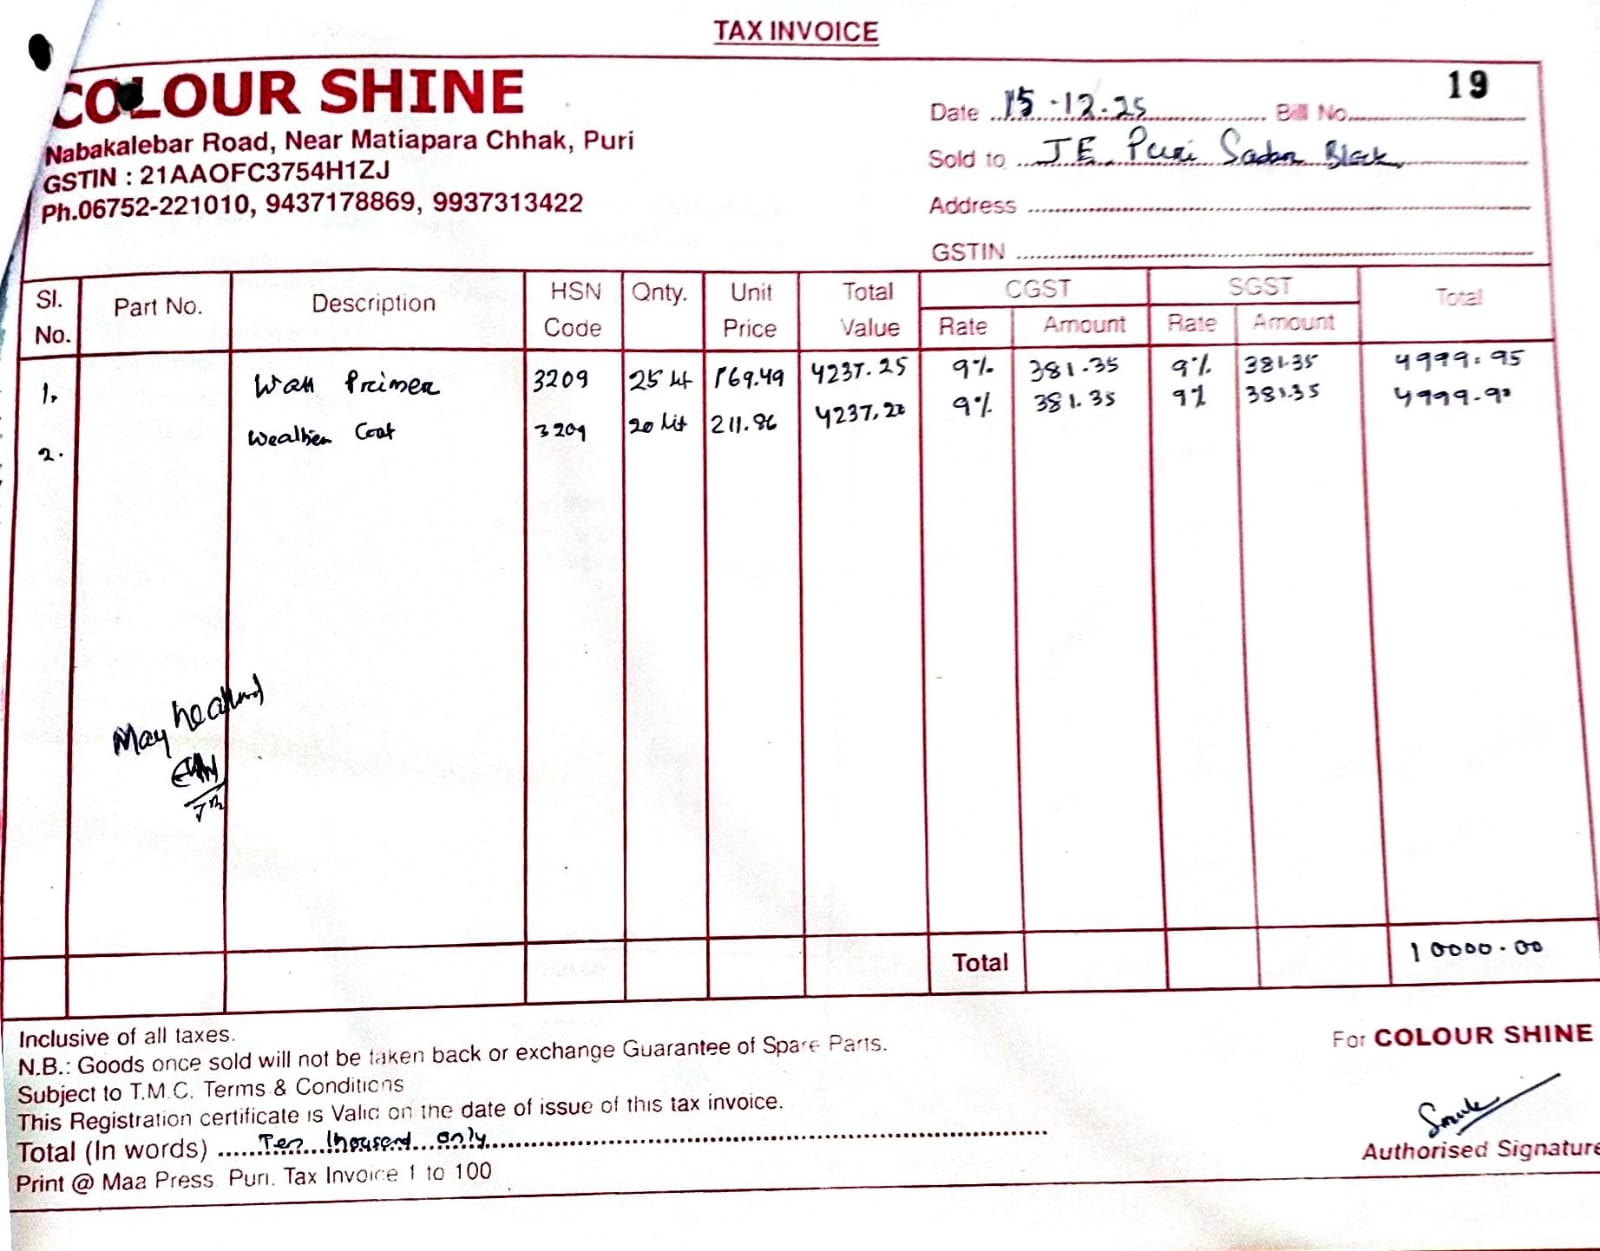 TAX INVOICE
COLOUR SHINE
Nabakalebar Road, Near Matiapara Chhak, Puri
GSTIN : 21AAOFC3754H1ZJ
Ph.06752-221010, 9437178869, 9937313422
Date 15-12-25 Bill No. 19
Sold to J E. Puri Sadar Block
Address
GSTIN
Sl. No. Part No. Description HSN Code Qnty. Unit Price Total Value CGST Rate Amount SGST Rate Amount Total
1. Wall Primer 3209 25 lt 169.49 4237.25 9% 381.35 9% 381.35 4999.95
2. Weather Coat 3209 20 lit 211.86 4237.20 9% 381.35 9% 381.35 4999.90
May
Total 10000.00
Inclusive of all taxes.
N.B.: Goods once sold will not be taken back or exchange Guarantee of Spare Parts.
Subject to T.M.C. Terms & Conditions
This Registration certificate is Valid on the date of issue of this tax invoice.
Total (In words) Ten thousand only
Print @ Maa Press Puri. Tax Invoice 1 to 100
For COLOUR SHINE
Authorised Signature